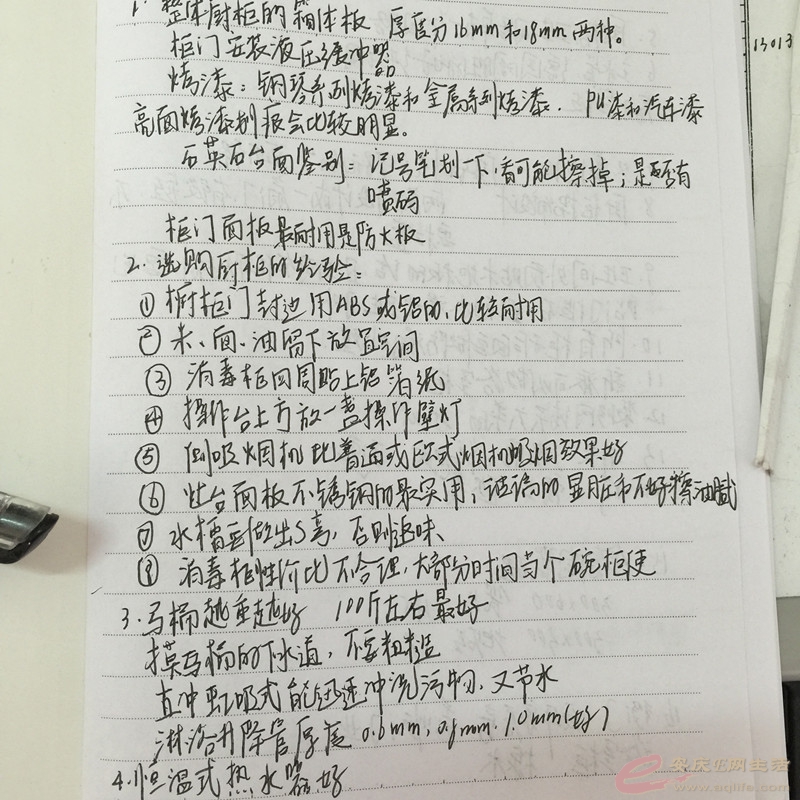 1. 整体厨柜的箱体板 厚度分16mm和18mm两种。
柜门安装液压缓冲器
烤漆：钢琴系列烤漆和金属系列烤漆. PU漆和汽车漆
亮面烤漆划痕会比较明显。
石英石台面鉴别：记号笔划一下,看可能擦掉；是否有
喷码
柜门面板最耐用是防火板
2. 选购厨柜的经验：
① 橱柜门封边用ABS或铝的,比较耐用
② 米、面、油留下放置空间
③ 消毒柜四周贴上铝箔纸
④ 操作台上方放一盏操作壁灯
⑤ 侧吸烟机比普通或欧式烟机吸烟效果好
⑥ 灶台面板不锈钢的最实用,玻璃的显脏和不好擦油腻
⑦ 水槽要做出S弯,否则返味
⑧ 消毒柜性价比不合理,大部分时间当个碗柜使
3. 马桶越重越好 100斤左右最好
摸马桶的下水道,不要粗糙
直冲虹吸式能迅速冲洗污物,又节水
淋浴升降管厚度 0.6mm, 0.8mm. 1.0mm(好)
4. 恒温式热水器好
13013
安庆E网生活
www.aqlife.com